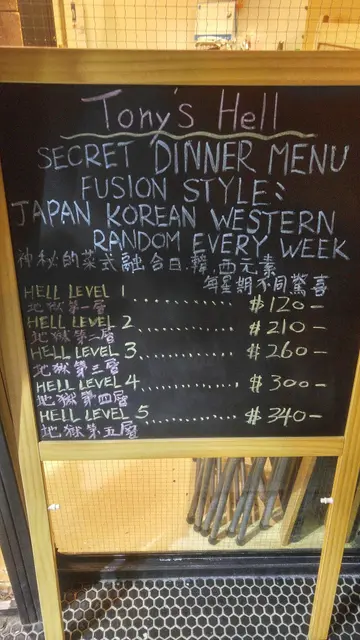 Tony's Hell
SECRET DINNER MENU
FUSION STYLE:
JAPAN KOREAN WESTERN
RANDOM EVERY WEEK
神秘的菜式融合日,韓,西元素
每星期不同驚喜
HELL LEVEL 1 ............. $120-
地獄第一層
HELL LEVEL 2 ............. $210-
地獄第二層
HELL LEVEL 3 ............. $260-
地獄第三層
HELL LEVEL 4 ............. $300-
地獄第四層
HELL LEVEL 5 ............. $340-
地獄第五層